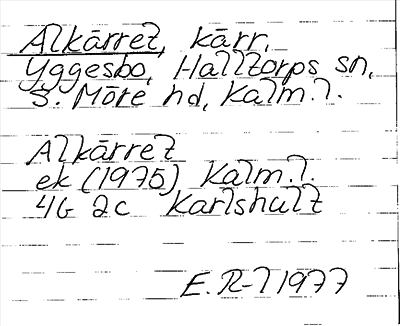 Alkärret, kärr,
Yggesbo, Halltorps sn,
S. Möre hd, Kalm. l.
Alkärret
ek (1975), Kalm. l.
4G 2c Karlshult
E. R-l 1977